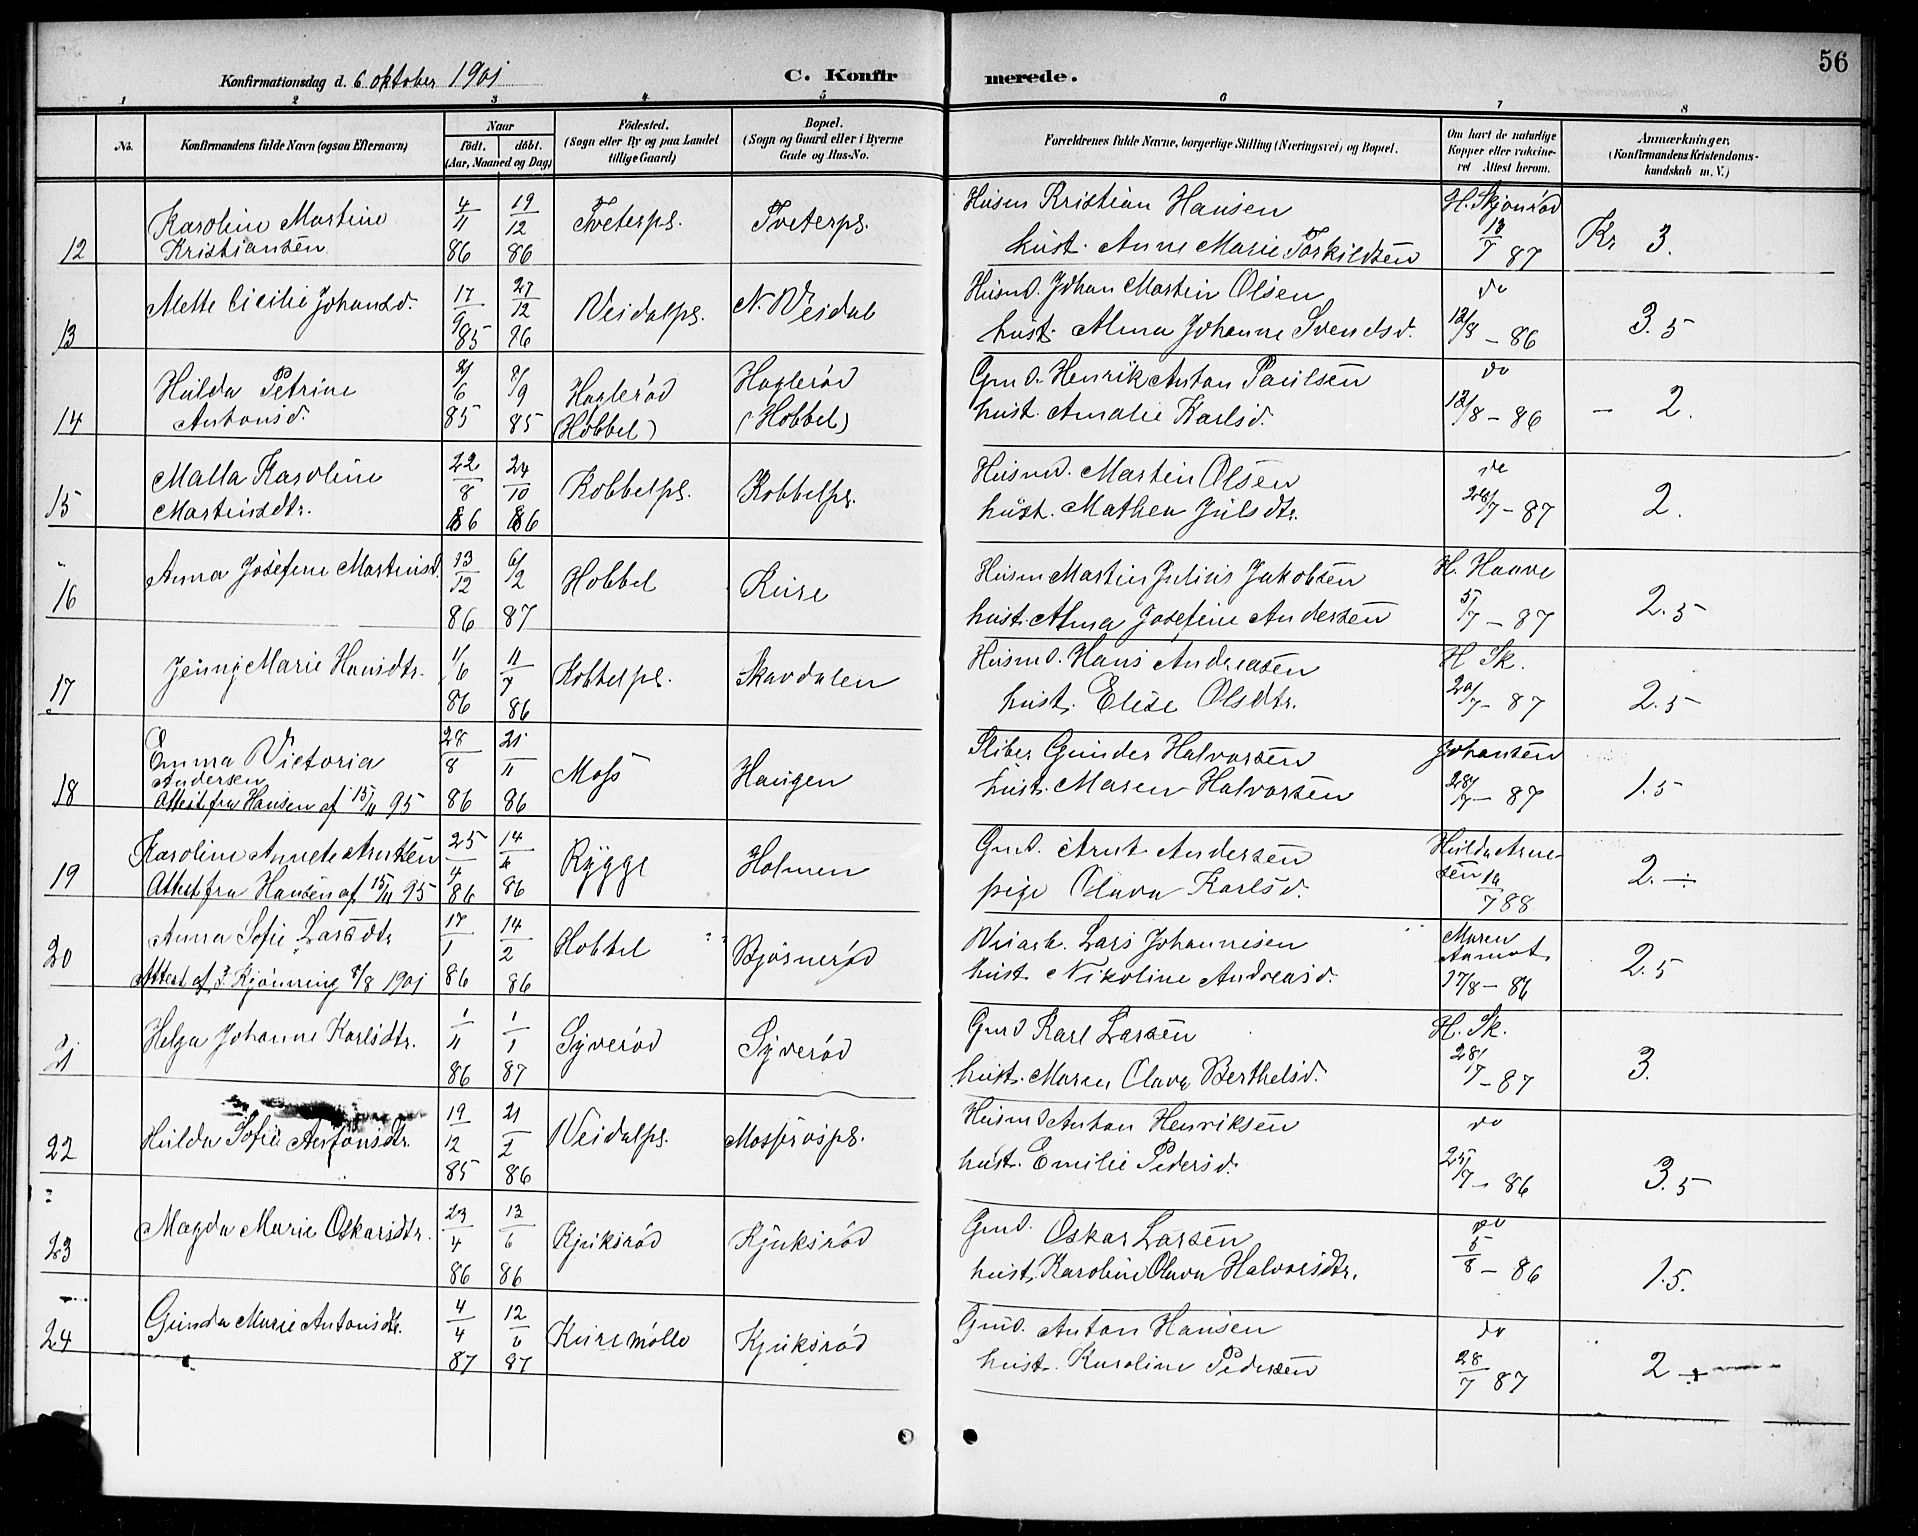 56
Konfirmationsdag d. 6 oktober 1901
C. Konfirmerede.
1 2 3 4 5 6 7 8
No. Konfirmandens fulde Navn (ogsaa Efternavn)
Naar
födt. döbt.
(Aar, Maaned og Dag)
Födested.
(Sogn eller By og paa Landet
tillige Gaard)
Bopæl.
(Sogn og Gaard eller i Byerne
Gade og Hus-No.
Forældrenes fulde Navne, borgerlige Stilling (Næringsvei) og Bopæl.
Om havt de naturlige
Kopper eller vakcine-
ret Attest herom.
Anmærkninger.
(Konfirmandens Kristendoms-
kundskab m. V.)
12 Karoline Martine Kristiansen 4/11 86 19/12 86 Tveterpl. Tveterpl. Husm Kristian Hansen H. Skjønrød
hust. Anne Marie Torkildsen 13/7 87 Kr 3.
13 Mette Cicilie Johansd. 17/9 85 27/12 86 Veidalpl. N. Veidal Husmd. Johan Martin Olsen do
hust. Alma Johanne Svendsd. 12/8 - 86 3.5
14 Hulda Petrine Antonsd. 6 85 9 85 Haglerød (Hobbel) Haglerød (Hobbel) Gmd. Henrik Anton Paulsen do
hust. Amalie Karlsd. 12/8 - 86 - 2.
15 Malla Karoline Martinsdtr. 22/8 86 24/10 86 Kobbelpl. Kobbelpl. Husmd. Martin Olsen do
hust. Mathea Julsdtr. 7 - 87 2.
16 Anna Josefine Martinsd. 13/12 86 6/2 87 Hobbel Kure Husm Martin Julius Jakobsen H. Haave
hust. Alma Josefine Andersen 5/7 - 87 2.5
17 Jenny Marie Hansdtr. 1/6 86 11/7 86 Kobbelpl. Skavdalen Husmd. Hans Andreasen H Sk.
hust. Elise Olsdtr. 20/7 - 87 2.5
18 Emma Victoria Andersen 28/8 86 21/11 86 Moss Haugen Sliber Gunder Halvorsen Johansen
Attest fra Hansen af 15/11 95 hust. Maren Halvorsen 28/7 - 87 1.5
19 Karoline Annete Arntsen 25/4 86 14 86 Rygge Holmen Gmd. Arnt Andersen Hulda Arne-
Attest fra Hansen af 15/11 95 pige Olava Karlsd. sen 7 88 2.
20 Anna Sofie Larsdtr 17/1 86 14/2 86 Hobbel Bjørnerød Lars Johannesen Maren Aamot
Attest af J. Kjønning 8 1901 hust. Nikoline Andreasd. 17/8 - 86 2.5
21 Helga Johanne Karlsdtr. 1/11 86 1/1 87 Syverød Syverød Gmd Karl Larsen H. Sk.
hust. Maren Olava Berthelsd. 28/7 - 87 3.
22 Hulda Sofie Antonsdtr. 19/12 85 21/2 86 Veidalpl. Mosfrøspl. Husmd Anton Henriksen do
hust. Emilie Pedersd. 25/7 - 86 3.5
23 Magda Marie Oskarsdtr. 23/4 86 13/6 86 Kjuksrød Kjuksrød Gmd. Oskar Larsen do
hust. Karoline Olava Halvorsdtr. 5/8 - 86 1.5.
24 Gunda Marie Antonsdtr. 4/4 87 12/6 87 Kure mølle Kjuksrød Gmd. Anton Hansen do
hust. Karoline Pedersen 28/7 87 2